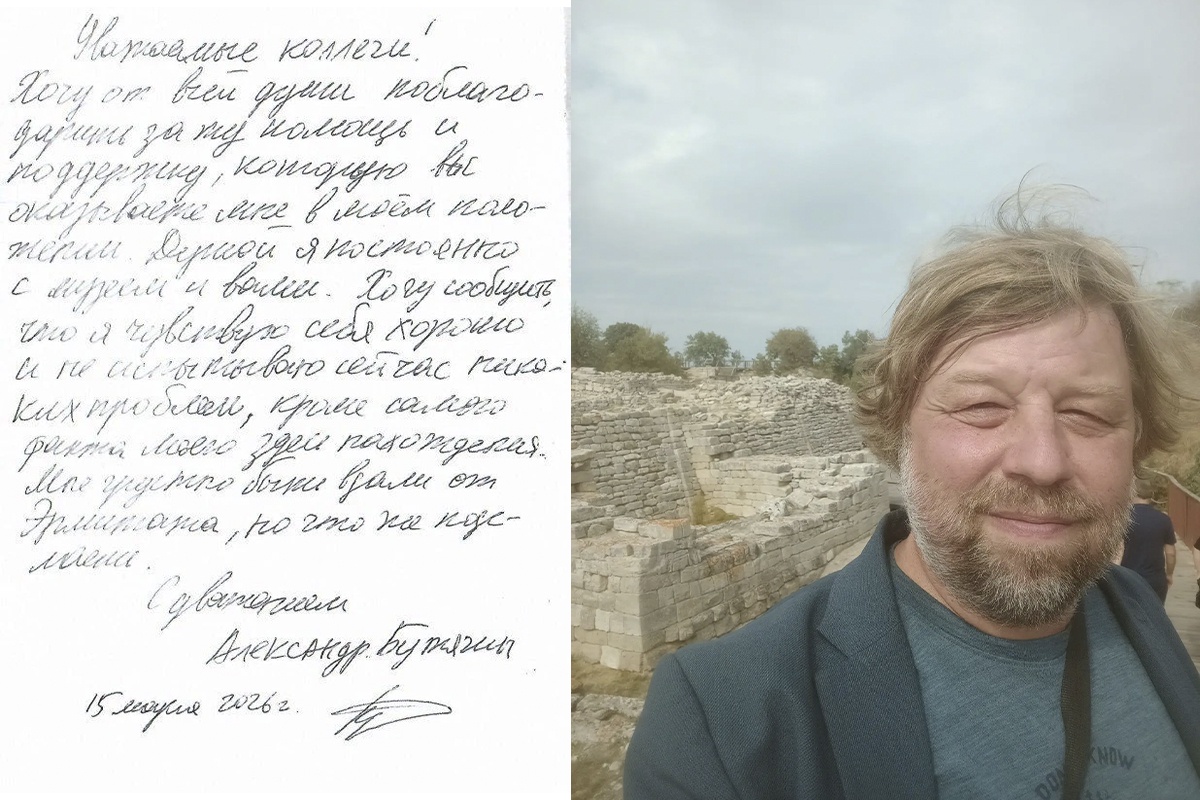 Уважаемые коллеги!
Хочу от всей души поблаго-
дарить за ту помощь и
поддержку, которую вы
оказываете мне в моём поло-
жении. Душой я постоянно
с музеем и вами. Хочу сообщить,
что я чувствую себя хорошо
и не испытываю сейчас ника-
ких проблем, кроме самого
факта моего здесь нахождения.
Мне грустно быть вдали от
Эрмитажа, но что же
С уважением
Александр Бутягин
15 марта 2026 г.
DON'T KNOW